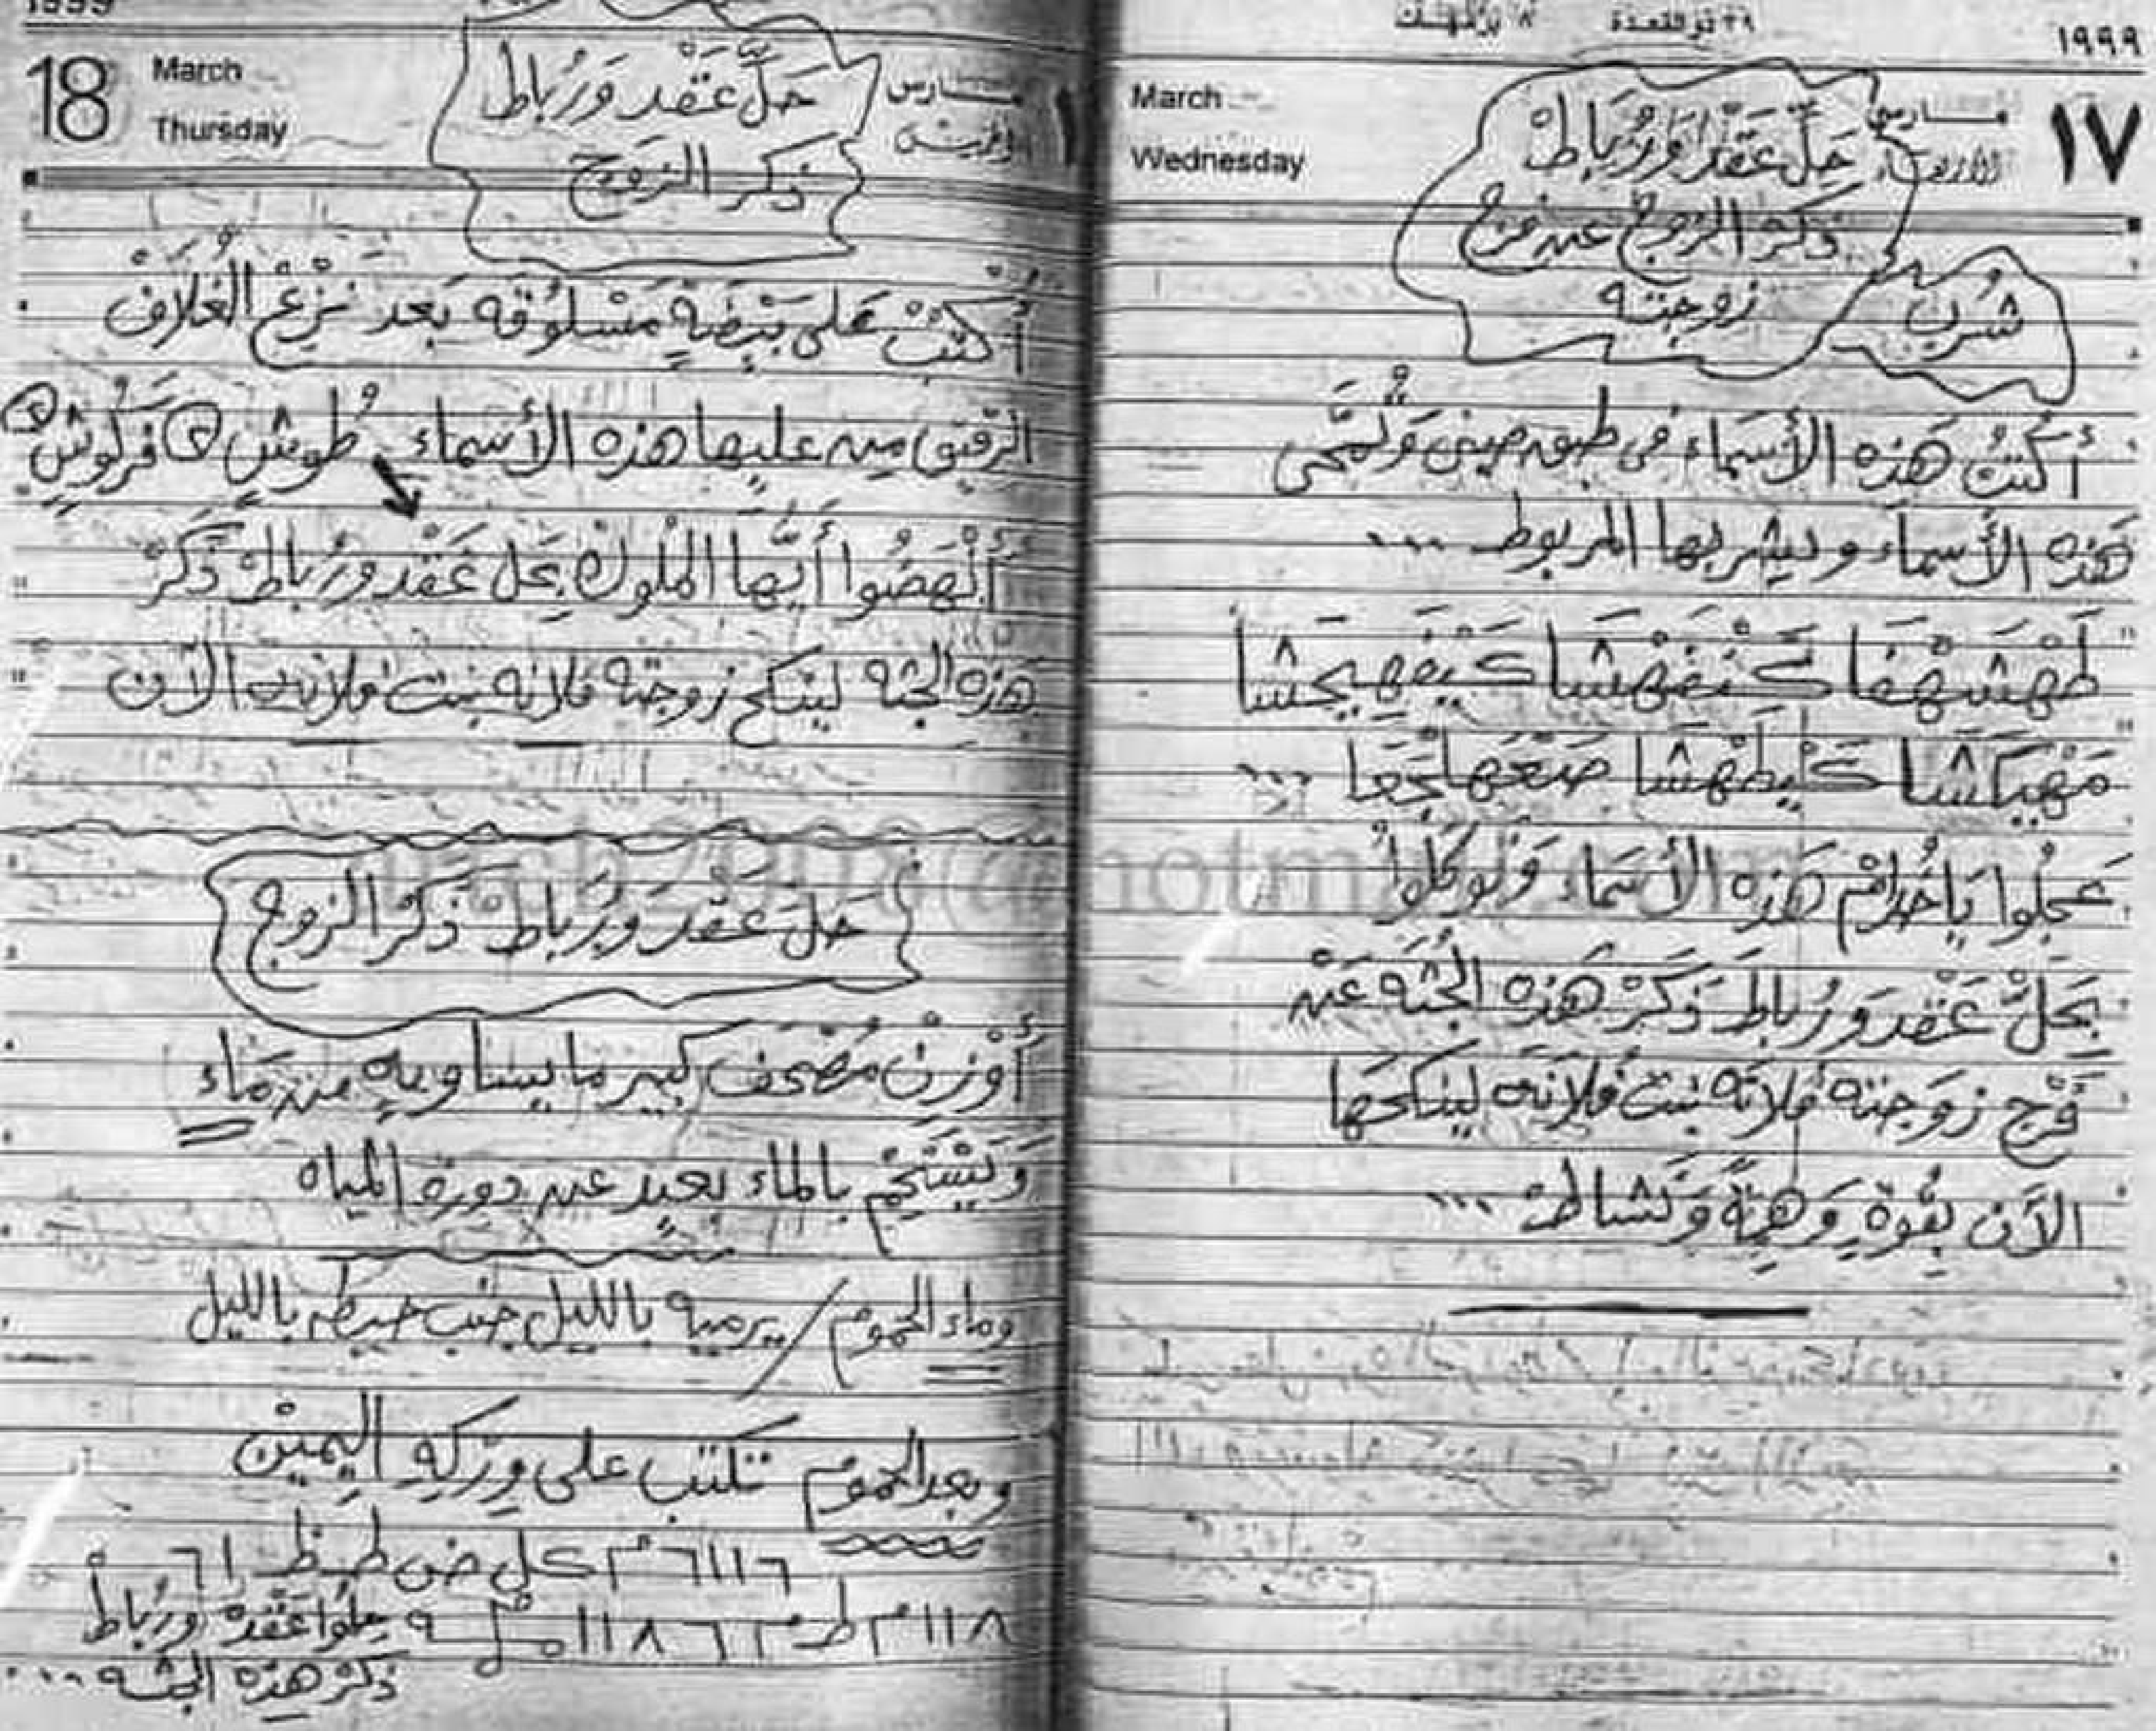 ١٩٩٩
٢٩ ذو القعدة
٨ برمهات
١٧
مارس
الأربعاء
March
Wednesday
حَلّ عَقْد وَرُبَاطْ
ذَكَرْ الزوج عن فرج
زوجته
شُرب
أُكتُبُ هَذِه الأَسمَاء فى طبق صينى وَتُمْحَى
هَذِه الأسماء ويشربها المربوط ...
طَهْشَهْفَا
مَهْيَكَشَا كَيْطَهْشَا
عَجِلُوا يَا خُدَّامْ هَذِه الأَسمَاء وَتَوَكَّلُوا
بَحَلّ عَقْد وَرُبَاط ذَكَرْ هَذِه الجُثَه عَنْ
فَرْج زَوجته فُلانَه بنت فُلاَنَه لينكحَهَا
الآن بقُوةٍ وَهِمَّةً وَنَشاط ...
1999
18
March
Thursday
مارس
الخميس
حَلّ عَقْد وَرُبَاط
ذكر الزَوج
أُكتُبْ عَلَى بَيْضَةٍ مَسْلُوقَه بَعد نَزْع الغُلاَفْ
الرقيق من عليها هذه الأسماء طُوشٍ ٥ فَرَكُوشٍ ٥
أَنْهَضُوا أَيَّهَا المُلُوك بحَل عَقْد وَرُبَاطْ ذَكَرْ
هذه الجثه لينكح زوجته فلانه بنت فلانه الآن
حَلّ عَقْد وَرُبَاطْ ذَكَرْ الزوج
أُوْزِنْ مُصْحَفْ كبير ما يساويه من مَاء
وَيَسْتَحِم بالماء بَعيد عن دورة المياه
وماء الحموم / يرميه بالليل جنب حيطه بالليل
وبعد الحموم تكتب على وِرْكِهِ اليَمِيْن
حِلُوا عَقْدْ وَرُبَاطْ
ذكَرْ هَذِه الجثه ...